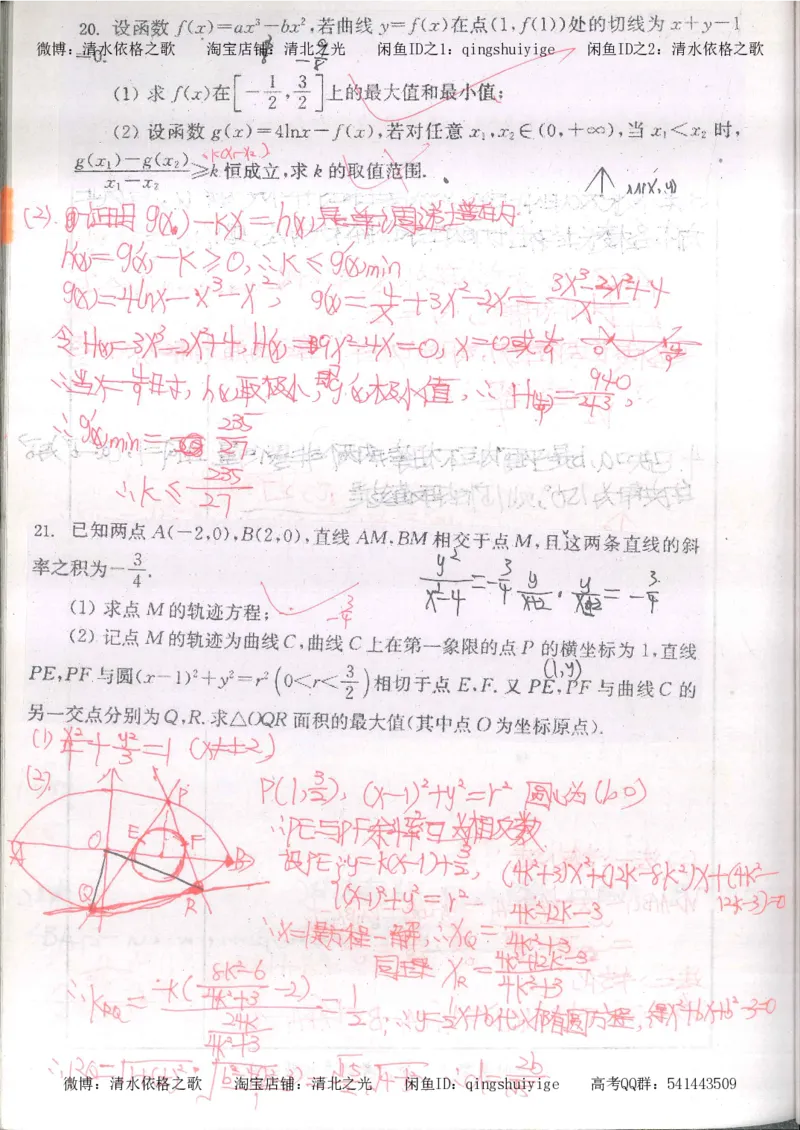 20. 设函数 f(x)=ax³-bx²,若曲线 y=f(x)在点(1,f(1))处的切线为 x+y-1
微博：清水依格之歌 淘宝店铺：清北之光 闲鱼ID之1：qingshuiyige 闲鱼ID之2：清水依格之歌
=0.
(1) 求 f(x)在[-1/2, 3/2]上的最大值和最小值;
(2) 设函数 g(x)=4lnx-f(x),若对任意 x₁,x₂∈(0,+∞),当 x₁<x₂ 时,
(g(x₁)-g(x₂))/(x₁-x₂)≥k 恒成立,求 k 的取值范围.
M(x,y)
h'(x)=g'(x)-k≥0,∴k≤g'(x)min
g(x)=4lnx-x³-x², g'(x)=4/x+3x²-2x=(3x³-2x²+4)/x
∴g'(x)min= 235/27
∴k≤ 235/27
21. 已知两点 A(-2,0),B(2,0),直线 AM,BM 相交于点 M,且这两条直线的斜
率之积为-3/4.
y²/(x²-4)=-3/4
(1) 求点 M 的轨迹方程;
-3/4
(2) 记点 M 的轨迹为曲线 C,曲线 C 上在第一象限的点 P 的横坐标为 1,直线
(1,y)
PE,PF 与圆(x-1)²+y²=r²(0<r<3/2)相切于点 E,F. 又 PE,PF 与曲线 C 的
另一交点分别为 Q,R. 求△OQR 面积的最大值(其中点 O 为坐标原点).
(1) x²/4+y²/3=1 (x≠±2)
(2).
P
E
F
O
A
B
Q
R
P(1,3/2), (x-1)²+y²=r² 圆心为(1,0)
∴PE与PF斜率互为相反数
设PE:y=k(x-1)+3/2, (4k²+3)x²+(12k-8k²)x+(4k²-
12k-3)=0
(x-1)²+y²=r²
∴x=1是方程一解,∴x_Q=(4k²-12k-3)/(4k²+3)
同理 x_R=(4k²+12k-3)/(4k²+3)
∴k_RQ=(-k((8k²-6)/(4k²+3)-2))/(24k/(4k²+3))=1/2,∴y=1/2x+b代入椭圆方程,得x²+bx+b²-3=0
微博：清水依格之歌 淘宝店铺：清北之光 闲鱼ID：qingshuiyige 高考QQ群：541443509